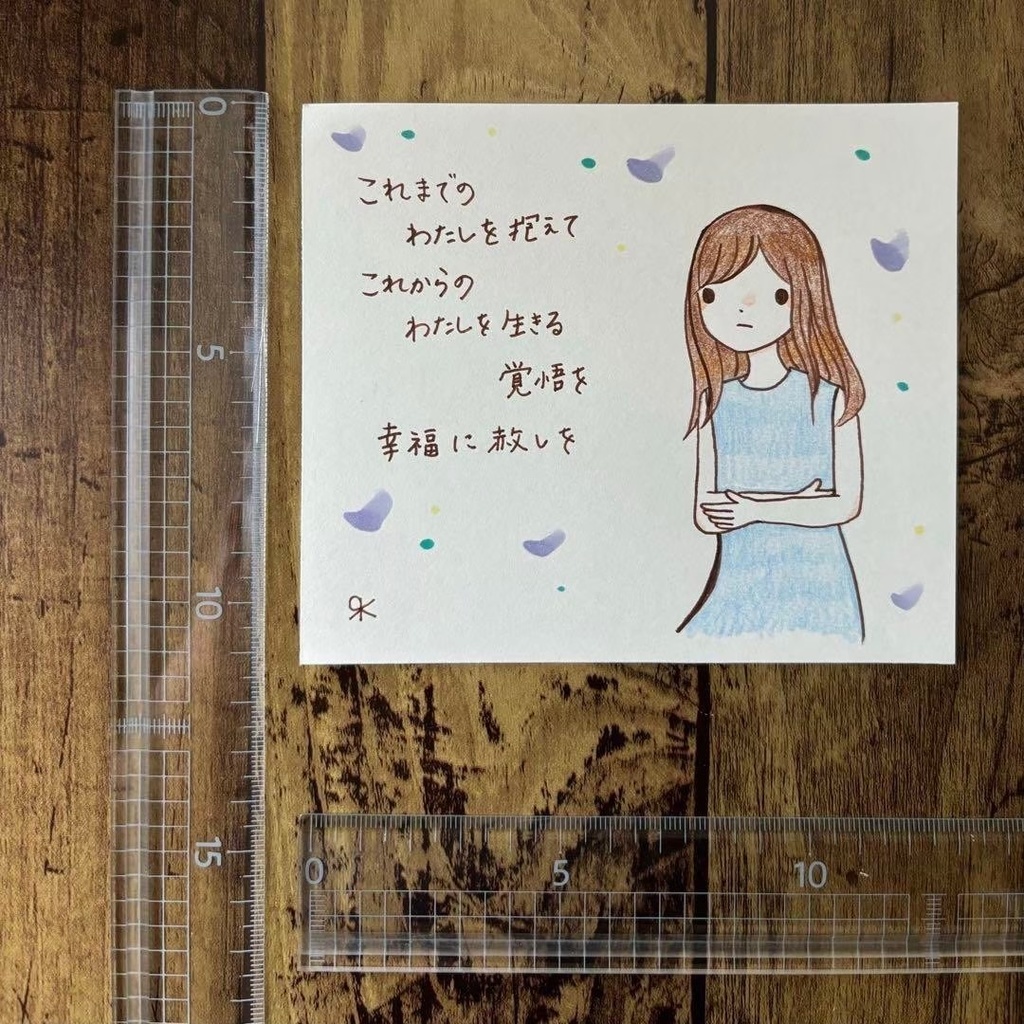 これまでの
わたしを抱えて
これからの
わたしを生きる
覚悟を
幸福に赦しを
0
5
10
15
0
5
10